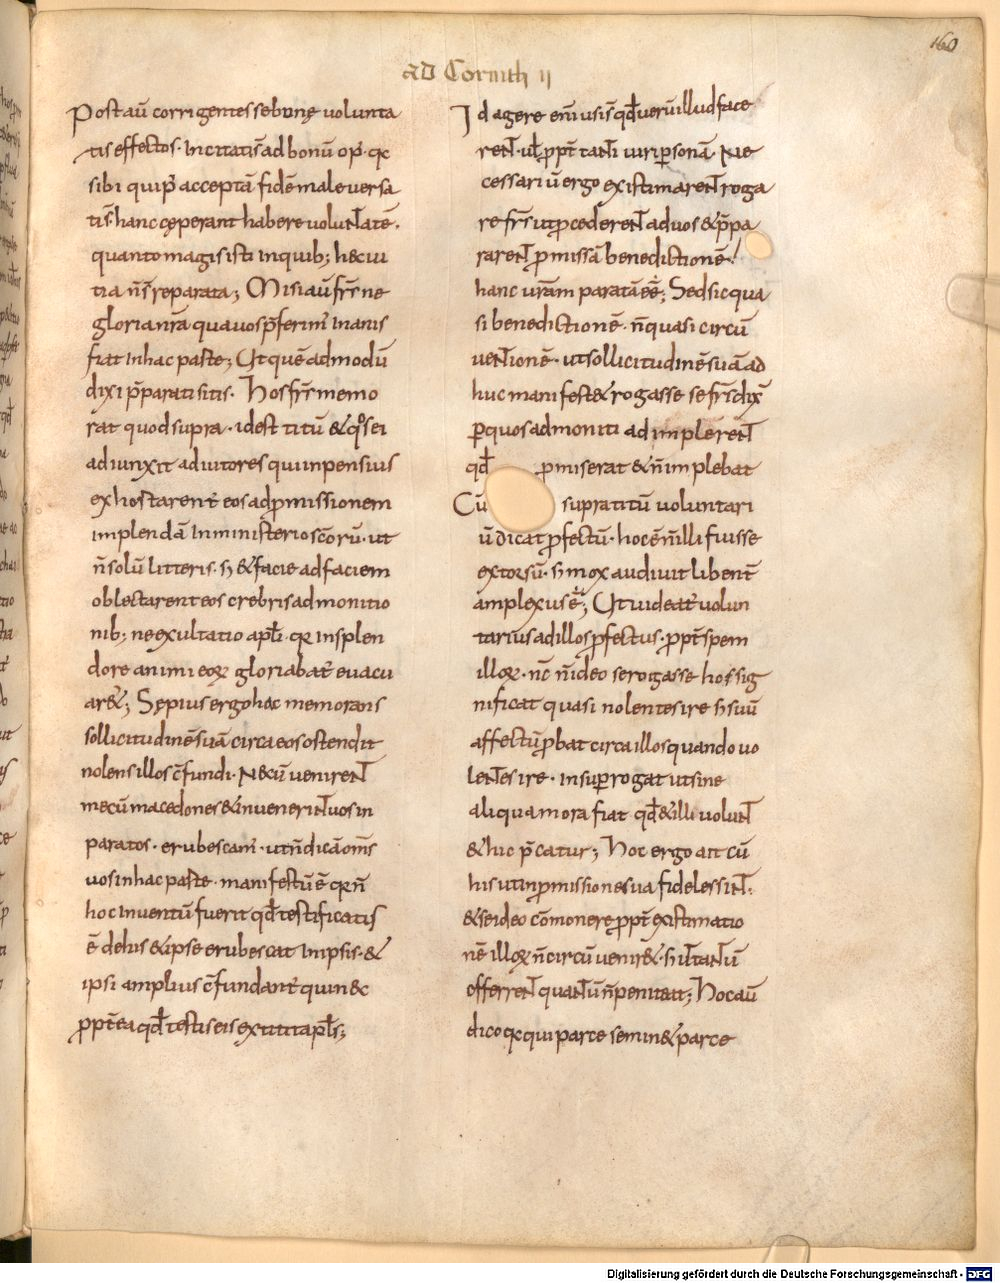 160
ad Corinth ii
Postaū corrigentes se bonę volunta
tis effectos. Incitatis ad bonū op. qr
sibi quip acceptā fidē male versa
tis hanc cęperant habere voluntatē.
quanto magis isti in quib; hec vi
tia n̄ s̄ reparata; Misi aū frs̄ ne
gloria nr̄a qua vos p̄ferim' inanis
fiat in hac parte; Ut quē ad modū
dixi p̄parati sitis. Hos frs̄ memo
rat quod supra. id est titū & quos ei
adiunxit adiutores qui inpensius
exhortarent' eos ad promissionem
implendā in ministerio sc̄orū. ut
n̄ solū litteris. s; & facie ad faciem
oblectarent eos crebris admonitio
nib; ne exultatio apl̄i. qr in splen
dore animi eoꝝ gloriabat' evacu
ar&; Sępius ergo hoc memorans
sollicitudinē suā circa eos ostendit
nolens illos c̄fundi. Ne cū venirent
mecū macedones & invenerint vos in
paratos. erubescam'. ut n̄ dicā om̄s
vos in hac parte. manifestū ē qr n̄
hoc inventū fuerit qd̄ testificatus
ē de his & ipse erubescat in ipsis. &
ipsi amplius c̄fundant' quin &
ꝓpt̄ea qd̄ testis eis extitit apl̄s;
Id agere eni visus qd̄ verū illud face
rent. vl̄ ꝓpt̄ tanti viri ꝑsonā. Ne
cessariū ergo existimarent roga
re frs̄ ut ꝓcederent ad vos & p̄pa
rarent ꝓmissā benedictionē!
hanc vr̄am paratā eē; Sed sic qua
si benedictionē. n̄ quasi circū
ventionē. ut sollicitudinē suā ad
huc manifest& rogasse se frs̄ dix̄
ꝑ quos admoniti ad implerent
qd̄ ꝓmiserat & n̄ implebat
Cū supra titū voluntari
ū dicat ꝓfectū. hoc ē n̄ illi fuisse
extorsū. s; mox audivit libent'
amplexus ē; Ut videat' volun
tarius ad illos ꝓfectus. ꝓpt̄ spem
illoꝝ. nc̄ n̄ ideo se rogasse hos sig
nificat quasi nolentes ire s; suū
affectū ꝓbat circa illos quando vo
lentes ire. insuper rogat ut sine
aliqua mora fiat qd̄ & illi volunt
& hic p̄catur; Hoc ergo ait cū
his ut in ꝓmissione sua fideles sint.
& se ideo cōmonere ꝓpt̄ existimatio
nē illoꝝ n̄ circūvenir&. s; tantū
offerrent quantū n̄ peniteat; Hoc aū
dico qr qui parce semin& parce
Digitalisierung gefördert durch die Deutsche Forschungsgemeinschaft - DFG